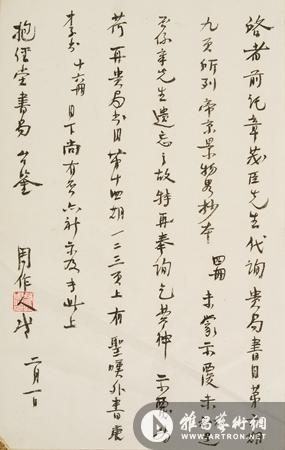 啓者前託章茂臣先生代詢 貴局書目第
九页所列帝京景物畧抄本 四冊 未蒙示覆未悉
係章先生遺忘之故特再奉詢乞費神 示覆为
荷再貴局书目第十四期一二三页上有聖嘆外書唐
才子书十六冊目下尚有否亦祈示及专此上
抱經堂書局 台鑒
周作人啓
二月一日
雅昌藝術網
WWW.ARTRON.NET